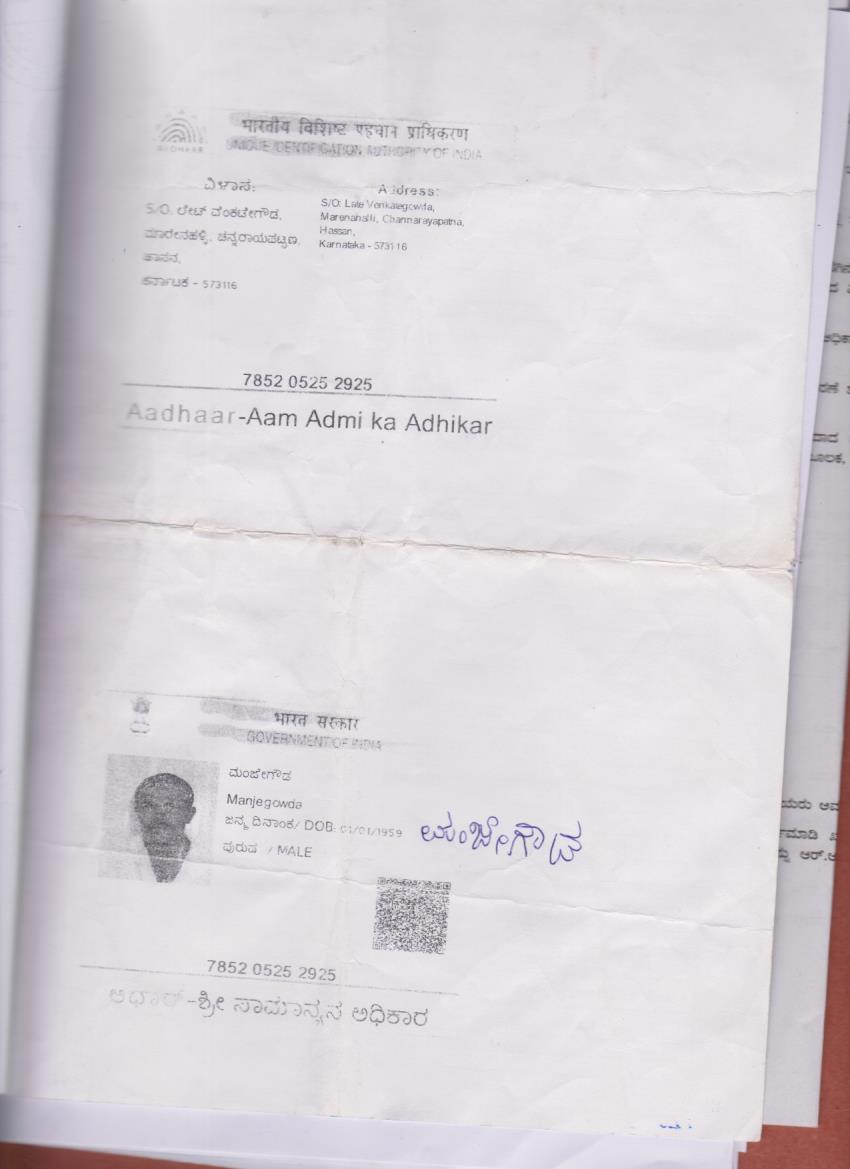 भारतीय विशिष्ट पहचान प्राधिकरण
UNIQUE IDENTIFICATION AUTHORITY OF INDIA
AADHAAR
ವಿಳಾಸ:
S/O. ಲೇಟ್ ವೆಂಕಟೇಗೌಡ,
ಮಾರೇನಹಳ್ಳಿ, ಚನ್ನರಾಯಪಟ್ಟಣ,
ಹಾಸನ,
ಕರ್ನಾಟಕ - 573116
Address:
S/O: Late Venkategowda,
Marenahalli, Channarayapatna,
Hassan,
Karnataka - 573116
7852 0525 2925
Aadhaar-Aam Admi ka Adhikar
भारत सरकार
GOVERNMENT OF INDIA
ಮಂಜೇಗೌಡ
Manjegowda
ಜನ್ಮ ದಿನಾಂಕ/ DOB: 01/01/1959
ಪುರುಷ / MALE
ಮಂಜೇಗೌಡ
7852 0525 2925
ಆಧಾರ್-ಶ್ರೀ ಸಾಮಾನ್ಯನ ಅಧಿಕಾರ